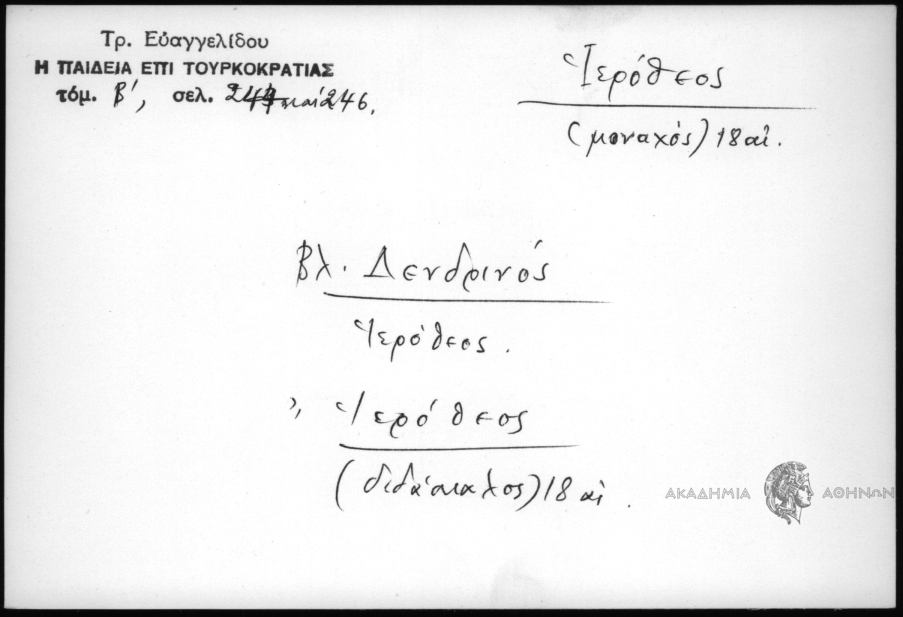 Τρ. Εὐαγγελίδου
Η ΠΑΙΔΕΙΑ ΕΠΙ ΤΟΥΡΚΟΚΡΑΤΙΑΣ
τόμ. Β', σελ. 246.
Ἱερόθεος
(μοναχός) 18 αἰ.
Βλ. Δενδρινός
Ἱερόθεος.
,, Ἱερόθεος
(διδάσκαλος) 18 αἰ.
ΑΚΑΔΗΜΙΑ ΑΘΗΝΩΝ